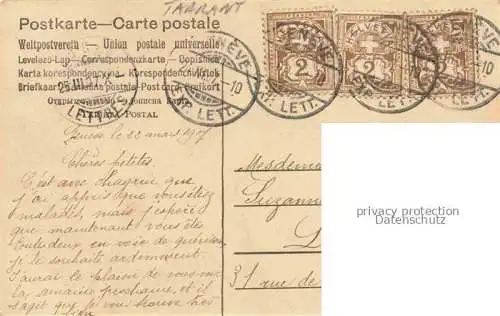 TARRANT
Postkarte — Carte postale
Weltpostverein — Union postale universelle
Levelező-Lap — Correspondenzkarte — Dopisnice
Karta korespondencyjna — Korespondenční lístek
Briefkaart
POSTAL
HELVETIA
2
2
GENÈVE
EXP. LETT.
25.III.07
LETTRES
Genève le 23 mars 1907
Chères petites.
C'est avec chagrin que
j'ai appris que vous étiez
malades, mais j'espère
que maintenant vous êtes
toutes deux en voie de guérison
je le souhaite ardemment.
J'aurai le plaisir de vous voir
la semaine prochaine, et il
s'agit que je vous trouve très
bien
Mesdem
Suzann
31 rue de
privacy protection
Datenschutz